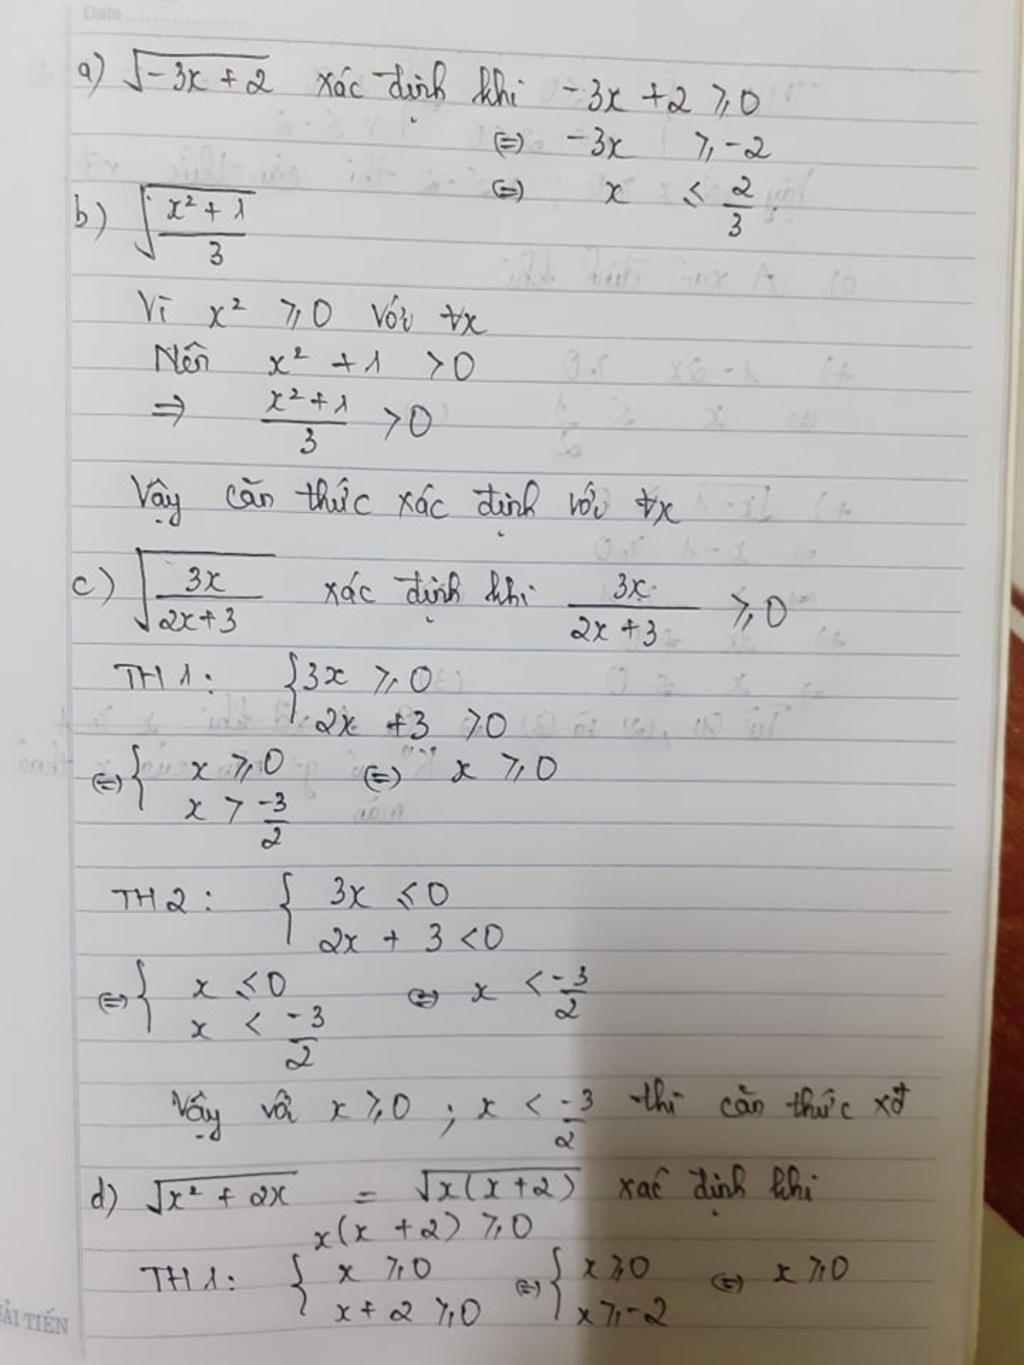 Date
a) √(-3x + 2) xác định khi -3x + 2 ≥ 0
⇔ -3x ≥ -2
⇔ x ≤ 2/3
b) √((x² + 1)/3)
Vì x² ≥ 0 với ∀x
Nên x² + 1 > 0
⇒ (x² + 1)/3 > 0
Vậy căn thức xác định với ∀x
c) √(3x/(2x+3)) xác định khi 3x/(2x+3) ≥ 0
TH1: { 3x ≥ 0
2x + 3 > 0
⇔ { x ≥ 0 ⇔ x ≥ 0
x > -3/2
TH2: { 3x ≤ 0
2x + 3 < 0
⇔ { x ≤ 0 ⇔ x < -3/2
x < -3/2
Vậy với x ≥ 0 ; x < -3/2 thì căn thức xđ
d) √(x² + 2x) = √(x(x+2)) xác định khi
x(x + 2) ≥ 0
TH1: { x ≥ 0 ⇔ { x ≥ 0 ⇔ x ≥ 0
x + 2 ≥ 0 x ≥ -2
ẢI TIẾN